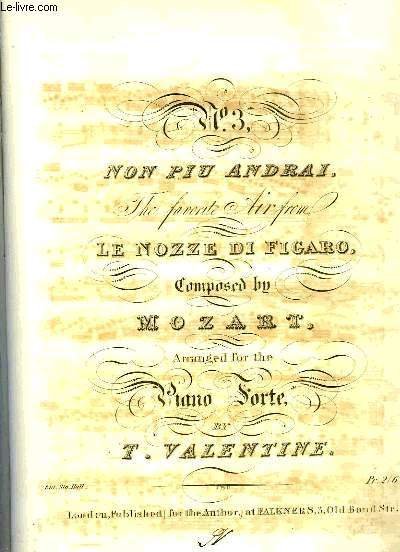 Le-livre.com
No. 3,
NON PIU ANDRAI,
The favorite Air from
LE NOZZE DI FIGARO,
Composed by
MOZART,
Arranged for the
Piano Forte,
BY
T. VALENTINE.
Ent. Sta. Hall. Pr. 2/6
London, Published, for the Author, at FALKNERS, 3, Old Bond Str.